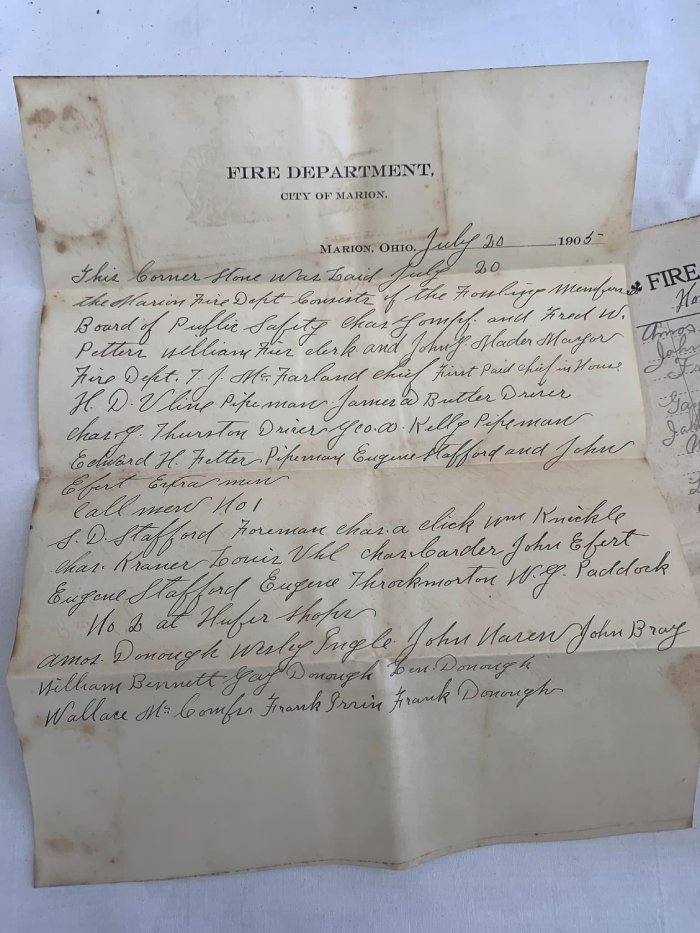 FIRE DEPARTMENT,
CITY OF MARION.
MARION, OHIO, July 20 1905
This Corner Stone Was Laid July 20
the Marion Fire Dept Consists of the Fowling Members
Board of Public Safety Chas Gompf. and Fred W.
Petters William Fies clerk and John G. Mader Mayor
Fire Dept. T. J. Mc Farland chief First Paid chief in House
H. D. Uline Pipeman James a Butler Driver
Chas. G. Thurston Driver Geo. a. Kelly Pipeman
Edward H. Fetter Pipeman Eugene Stafford and John
Efert Extra men
Call men No 1
S. D. Stafford Foreman Chas. a click Wm Knickle
Chas. Kraner Louis Uhl Chas. Carder John Efert
Eugene Stafford Eugene Throckmorton W. G. Paddock
No 2 at Hufer Shops
Amos. Donough Wesley Engle John John Bray
William Bennett Gay Donough Ben Donough
Wallace Mc Frank Irvin Frank Donough
FIRE
John